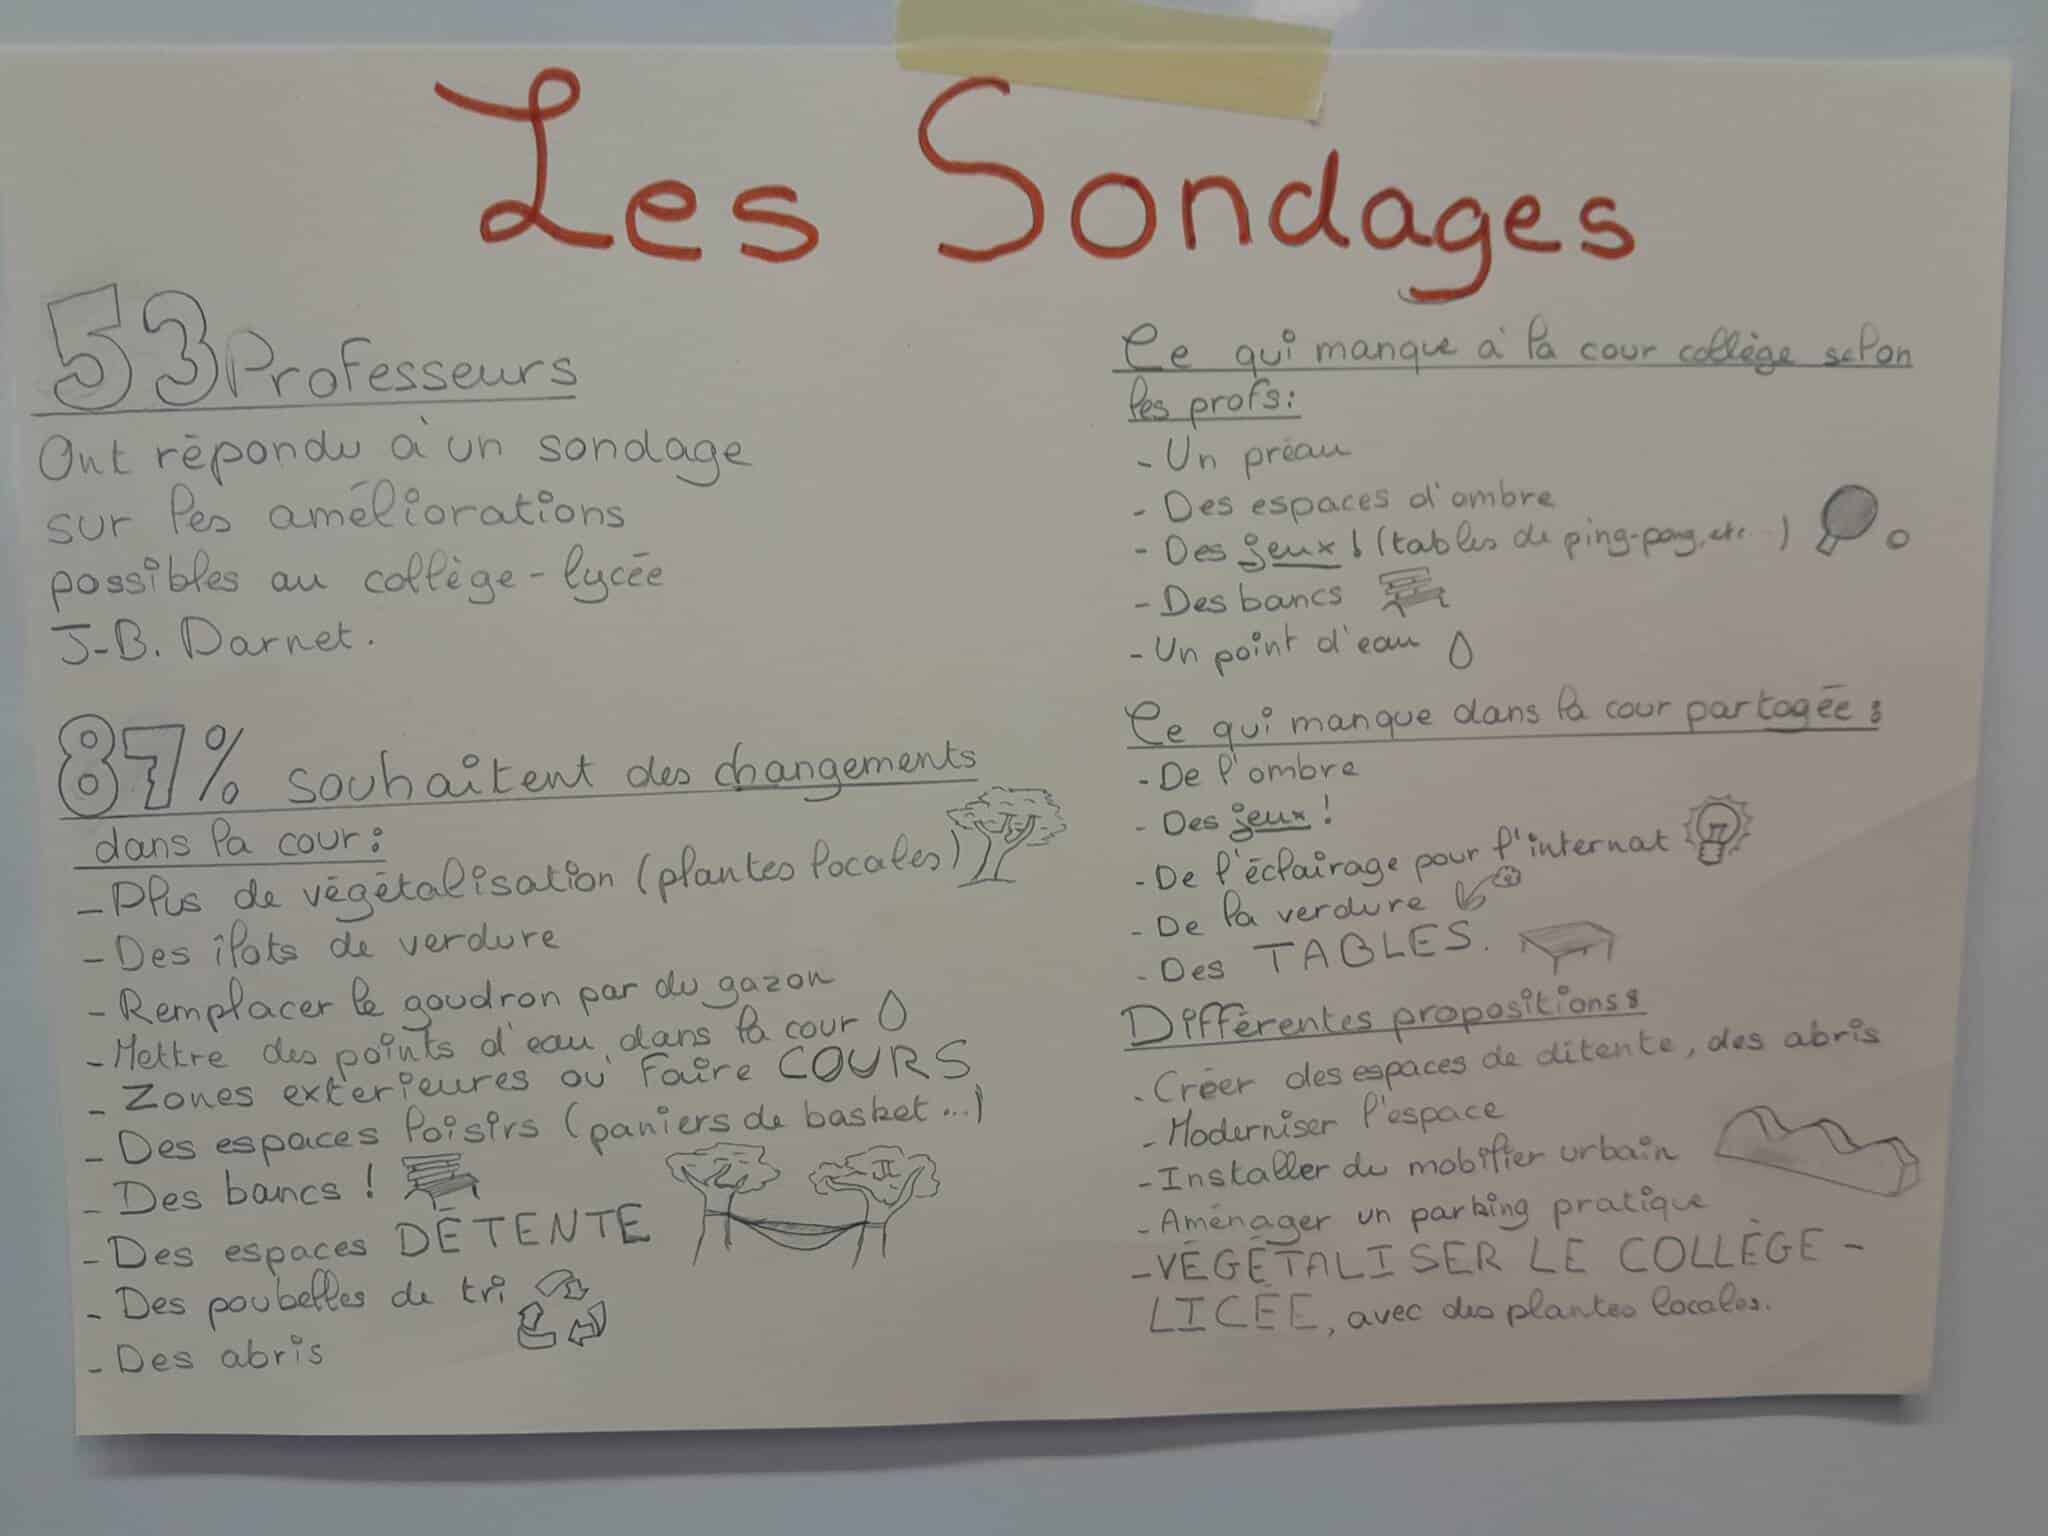 Les Sondages
53 Professeurs
Ont répondu à un sondage
sur les améliorations
possibles au collège-lycée
J-B. Darnet.
87% souhaitent des changements
dans la cour :
- Plus de végétalisation (plantes locales)
- Des îlots de verdure
- Remplacer le goudron par du gazon
- Mettre des points d'eau dans la cour
- Zones extérieures où faire COURS
- Des espaces loisirs (paniers de basket...)
- Des bancs !
- Des espaces DÉTENTE
- Des poubelles de tri
- Des abris
Ce qui manque à la cour collège selon
les profs :
- Un préau
- Des espaces d'ombre
- Des jeux ! (tables de ping-pong, etc...)
- Des bancs
- Un point d'eau
Ce qui manque dans la cour partagée :
- De l'ombre
- Des jeux !
- De l'éclairage pour l'internat
- De la verdure
- Des TABLES.
Différentes propositions :
- Créer des espaces de ditente, des abris
- Moderniser l'espace
- Installer du mobilier urbain
- Aménager un parking pratique
- VÉGÉTALISER LE COLLÈGE -
LICÉE, avec des plantes locales.